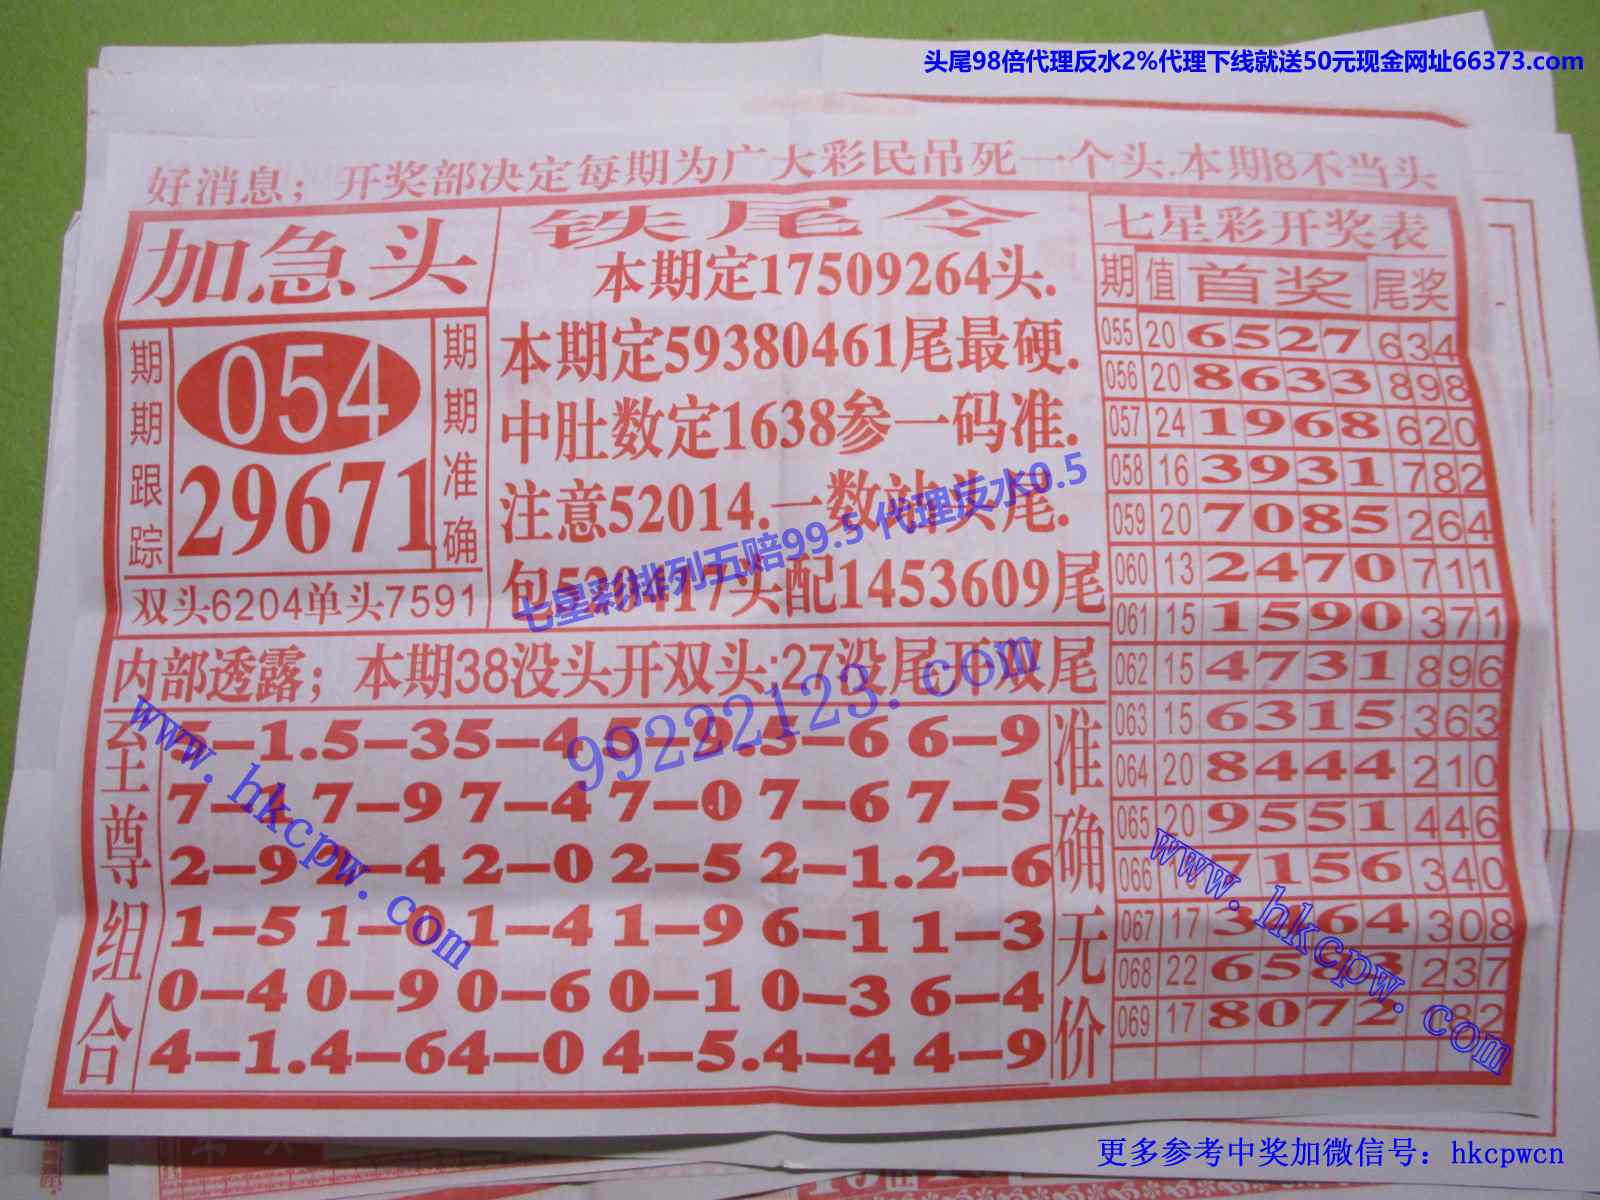 头尾98倍代理反水2%代理下线就送50元现金网址66373.com
好消息；开奖部决定每期为广大彩民吊死一个头.本期8不当头
加急头
期期跟踪
054
29671
期期准确
双头6204单头7591
铁尾令
本期定17509264头.
本期定59380461尾最硬.
中肚数定1638参一码准.
注意52014.一数神头尾.
包520417头配1453609尾
七星彩排列五赔99.5 代理反水0.5
内部透露；本期38没头开双头;27没尾开双尾
99222123.com
www.hkcpw.com
至尊组合
5-1.5-35-45-0.5-6 6-9
7-1 7-9 7-4 7-0 7-6 7-5
2-9 2-4 2-0 2-5 2-1.2-6
1-5 1-0 1-4 1-9 6-1 1-3
0-4 0-9 0-6 0-1 0-3 6-4
4-1.4-64-0 4-5.4-4 4-9
准确无价
七星彩开奖表
期 值 首奖 尾奖
055 20 6527 634
056 20 8633 898
057 24 1968 620
058 16 3931 782
059 20 7085 264
060 13 2470 711
061 15 1590 371
062 15 4731 896
063 15 6315 363
064 20 8444 210
065 20 9551 446
066 7156 340
067 17 3464 308
068 22 237
069 17 8072 182
www.hkcpw.com
更多参考中奖加微信号：hkcpwcn